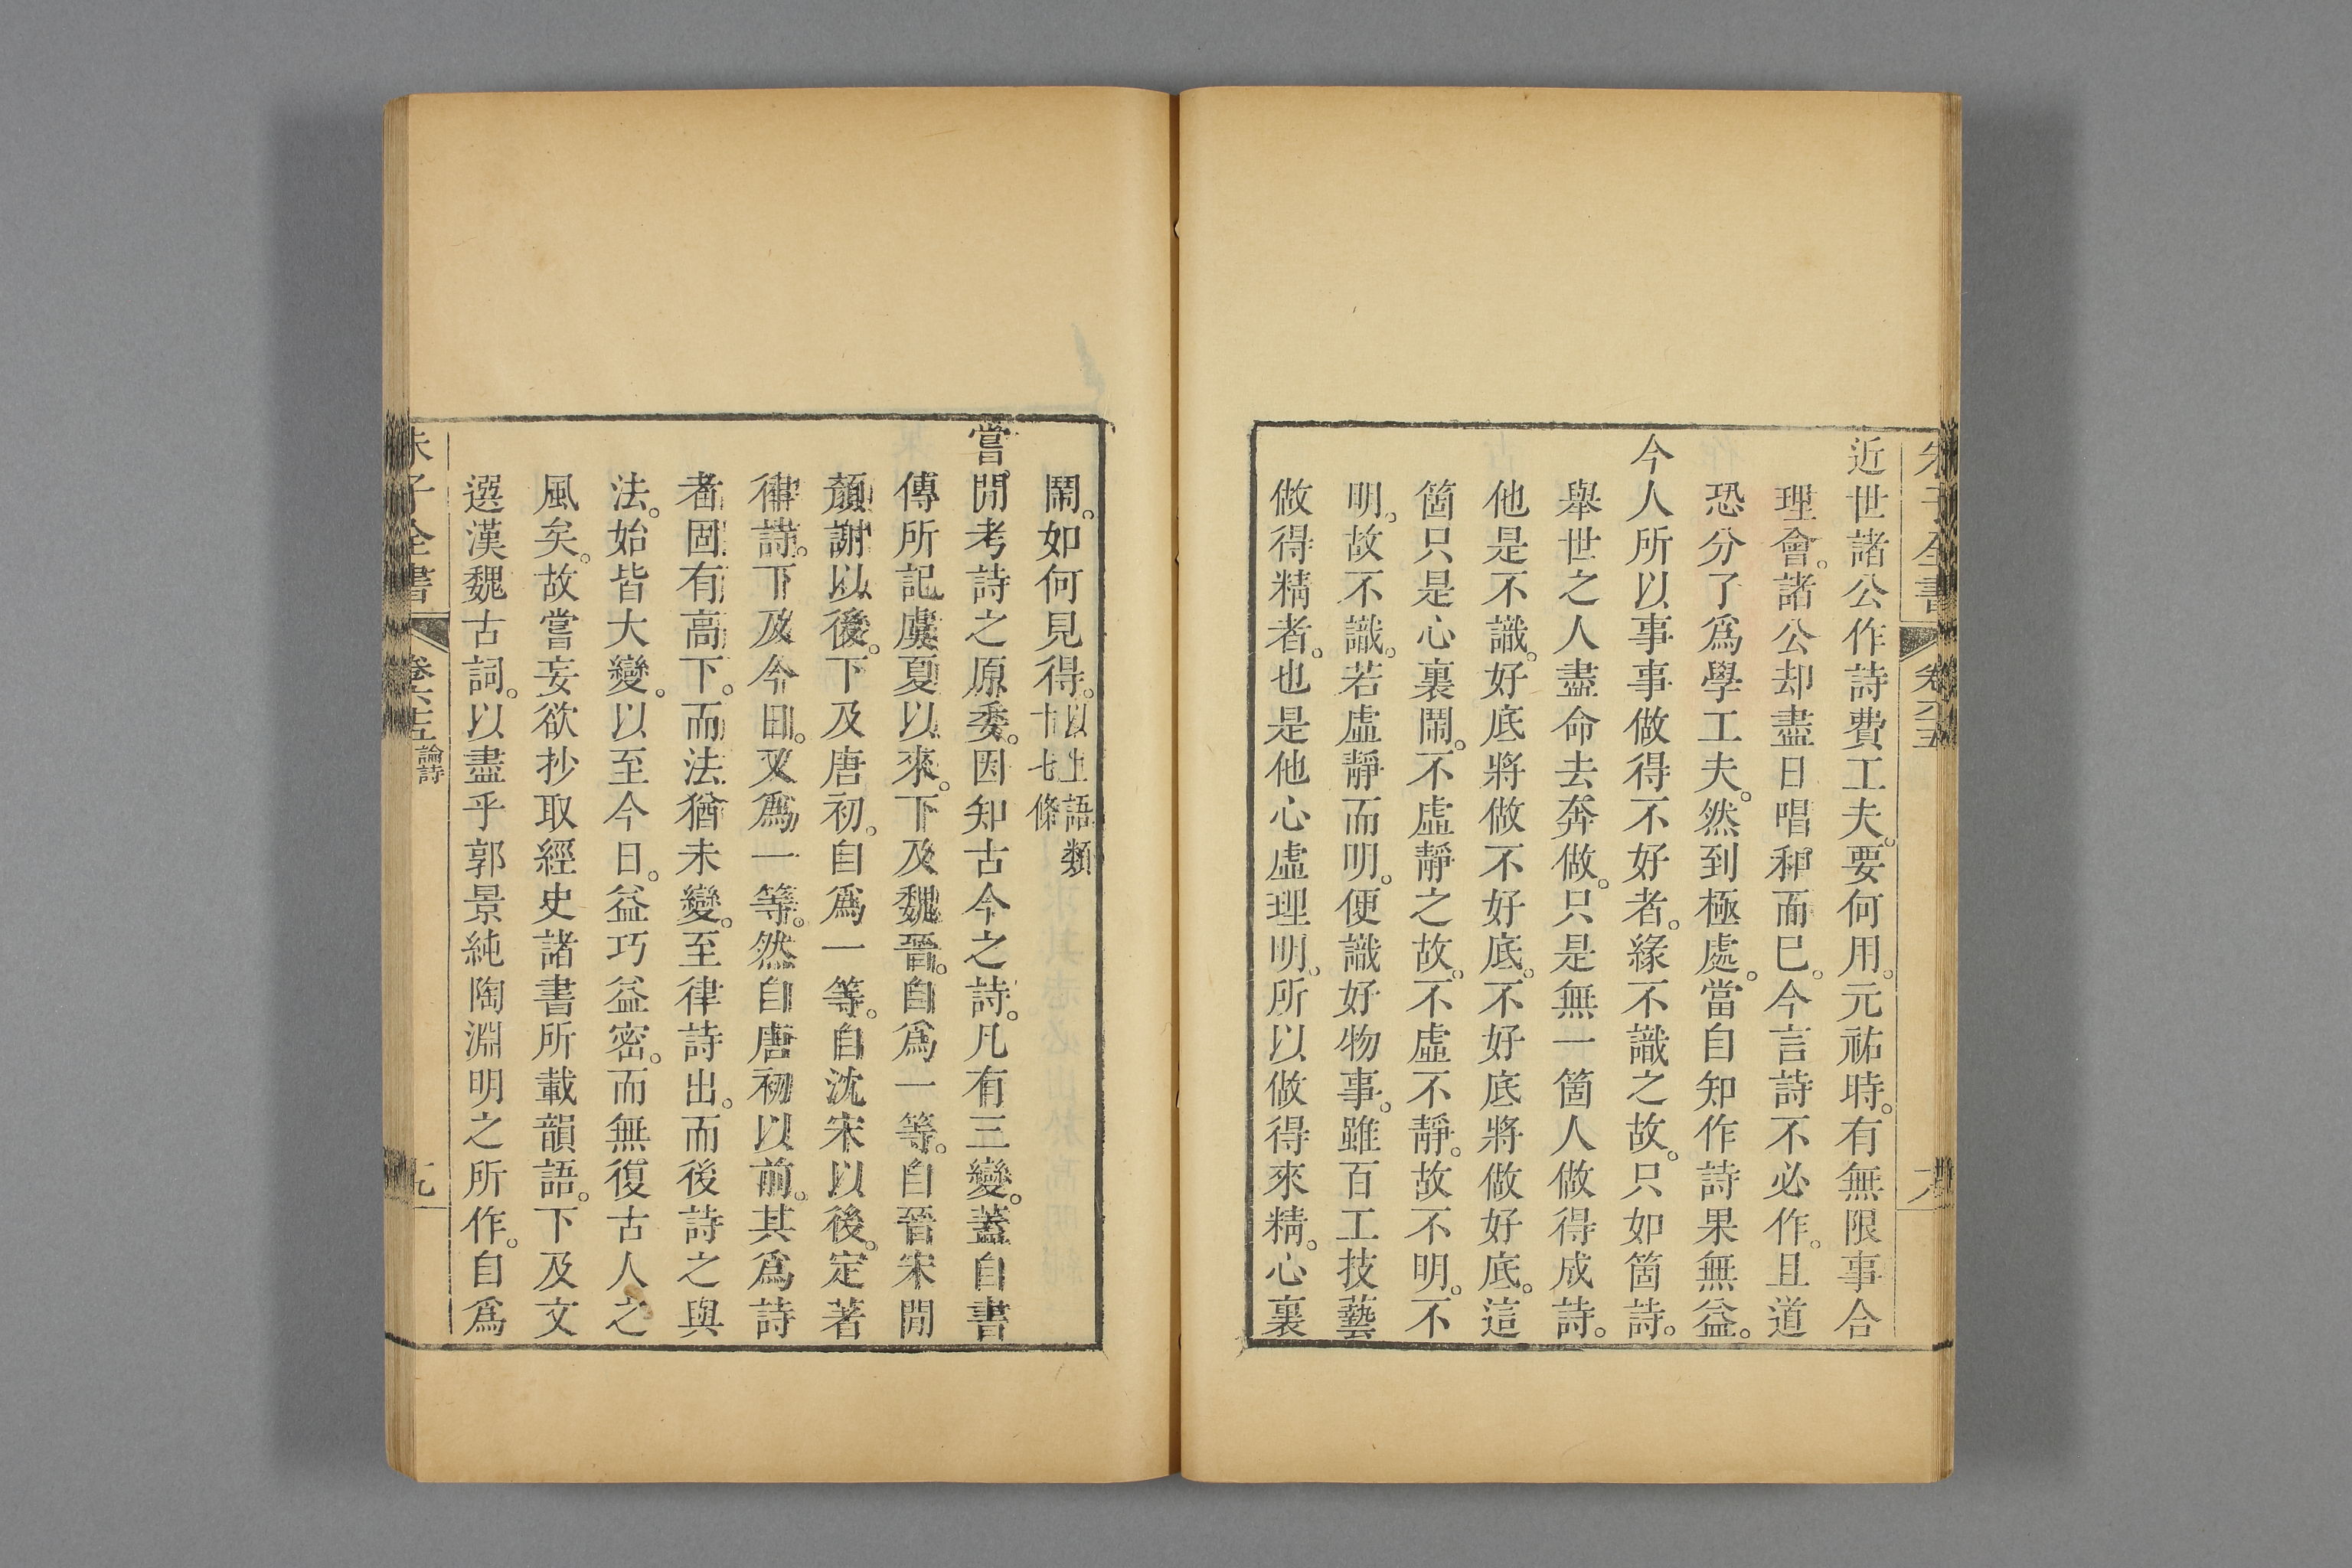 近世諸公作詩費工夫。要何用。元祐時。有無限事合
理會。諸公却盡日唱和而已。今言詩不必作。且道
恐分了爲學工夫。然到極處。當自知作詩果無益。
今人所以事事做得不好者。緣不識之故。只如箇詩。
舉世之人盡命去奔做。只是無一箇人做得成詩。
他是不識。好底將做不好底。不好底將做好底。這
箇只是心裏鬧。不虛靜之故。不虛不靜。故不明。不
明。故不識。若虛靜而明。便識好物事。雖百工技藝
做得精者。也是他心虛理明。所以做得來精。心裏
鬧。如何見得。以上語類
十七條
嘗閒考詩之原委。因知古今之詩。凡有三變。蓋自書
傳所記虞夏以來。下及魏晉。自爲一等。自晉宋閒
顏謝以後。下及唐初。自爲一等。自沈宋以後。定著
律詩。下及今日。又爲一等。然自唐初以前。其爲詩
者固有高下。而法猶未變。至律詩出。而後詩之與
法。始皆大變。以至今日。益巧益密。而無復古人之
風矣。故嘗妄欲抄取經史諸書所載韻語。下及文
選漢魏古詞。以盡乎郭景純陶淵明之所作。自爲
朱子全書
卷六十五
論詩